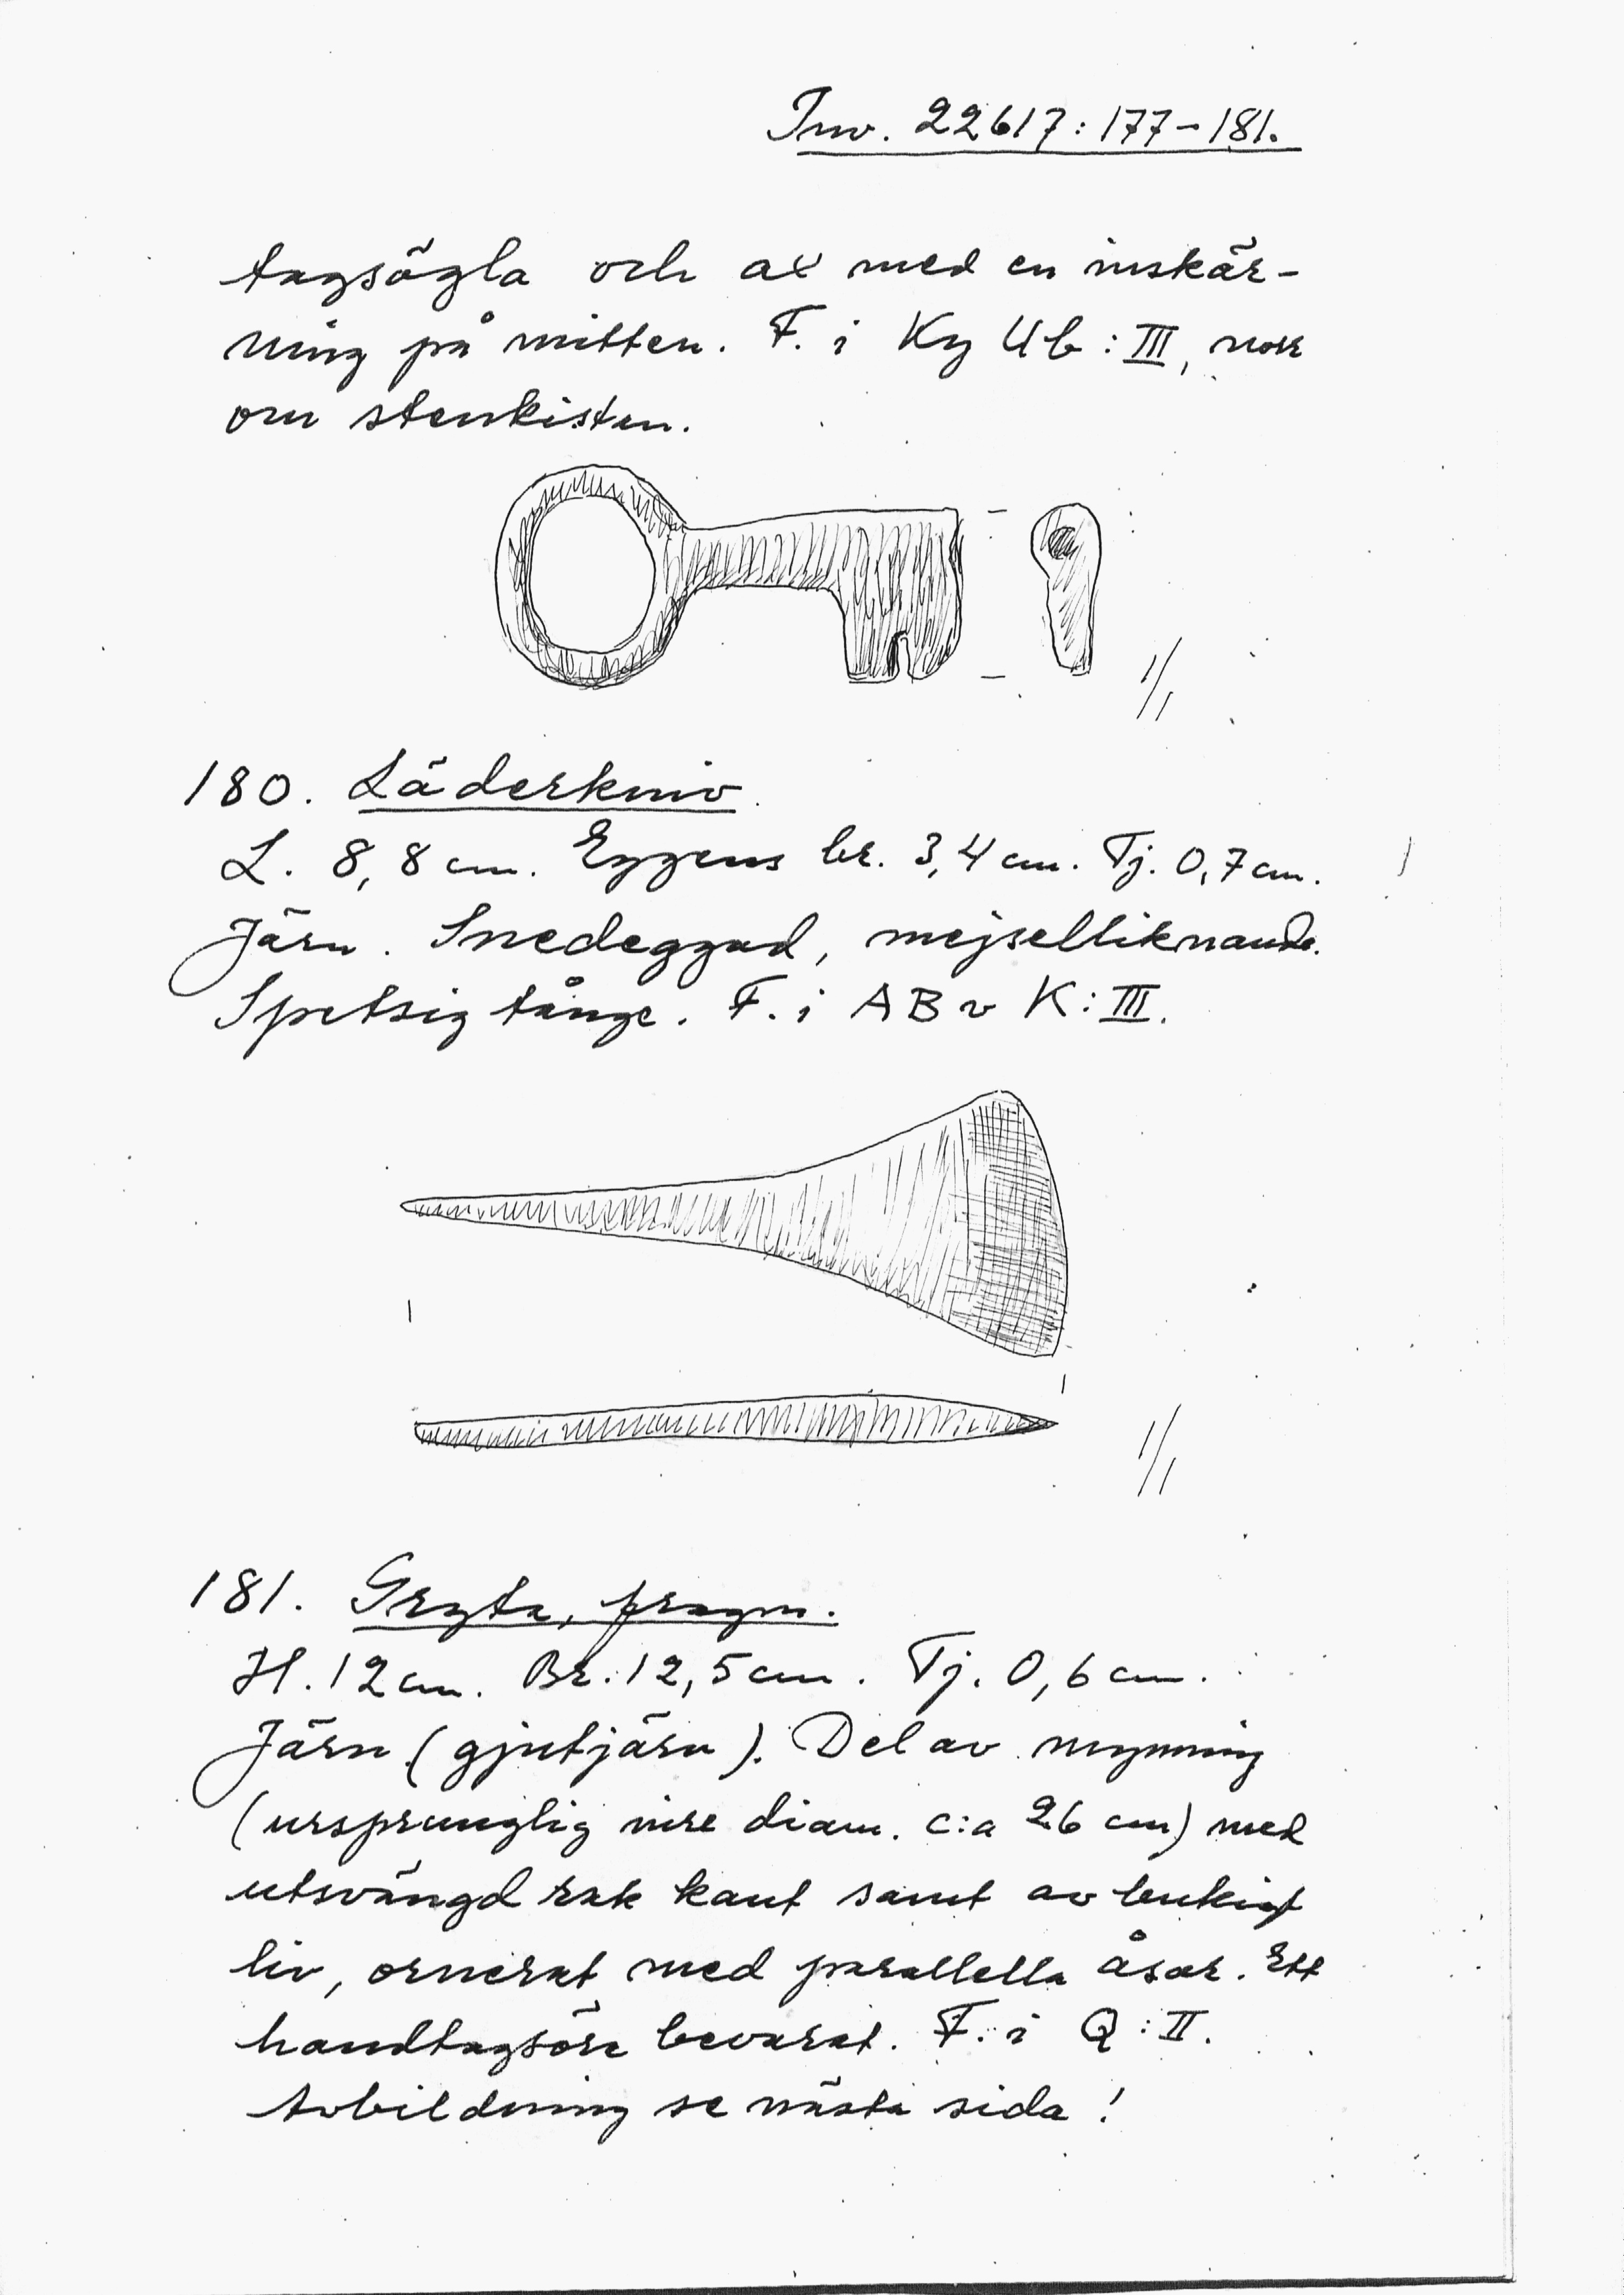 Inv. 22617:177-181.
tagsögla och ax med en inskär-
ning på mitten. F. i Ky Ub:III, norr
om stenkisten.
1/1
180. Läderkniv
L. 8,8 cm. Eggens br. 3,4 cm. Tj. 0,7 cm.
Järn. Snedeggad, mejselliknande.
Spetsig tånge. F. i ABv K:III.
1/1
181. Gryta, fragm.
H. 12 cm. Br. 12,5 cm. Tj. 0,6 cm.
Järn (gjutjärn). Del av mynning
(ursprunglig inre diam. c:a 26 cm) med
utsvängd rak kant samt av bukigt
liv, ornerat med parallella åsar. Ett
handtagsöra bevarat. F. i Q:II.
Avbildning se nästa sida!